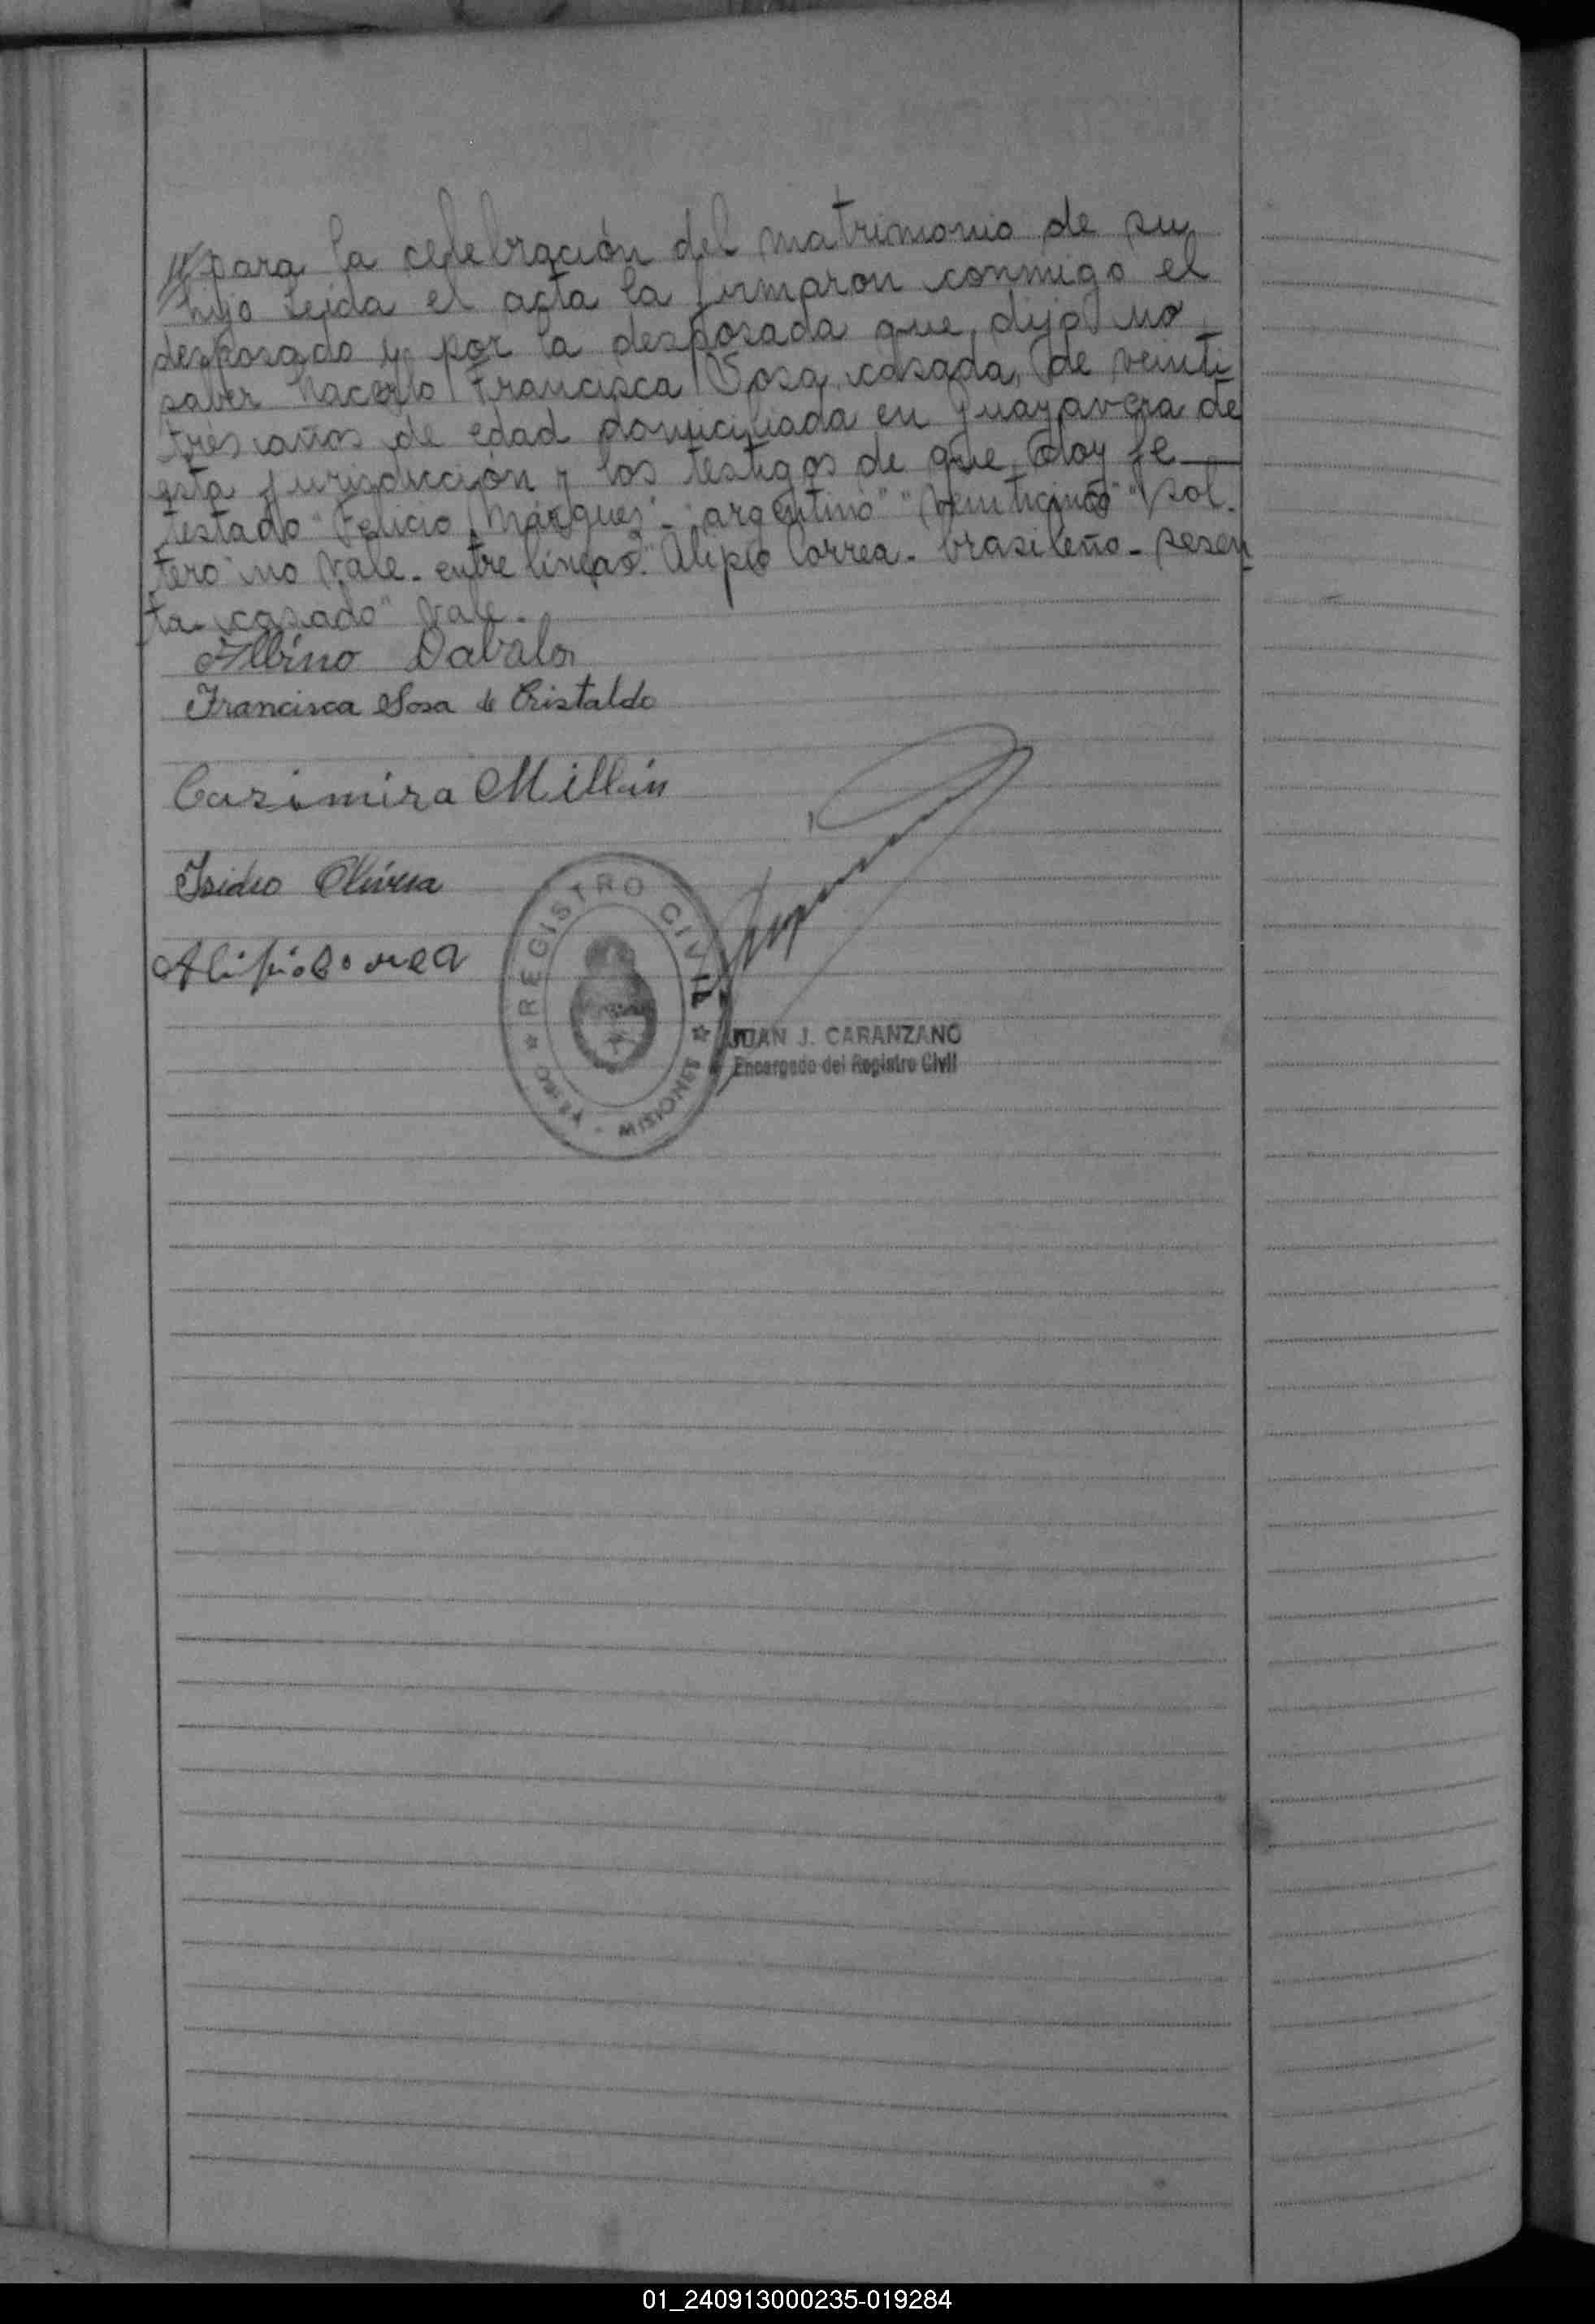 // para la celebración del matrimonio de su
hijo Leida el acta la firmaron conmigo el
desposado y por la desposada que dijo no
saber hacerlo Francisca Sosa, casada, de veinti
tres años de edad domiciliada en Guayavera de
esta jurisdicción y los testigos de que doy fe
testado "Felicio Márquez" - "argentino" "veinticinco" "sol-
tero" no vale - entre líneas: "Alipio Correa - brasileño - sesen
ta - casado" vale.
Albino Dabalos
Francisca Sosa de Cristaldo
Casimira Millán
Isidro Olivera
Alipio Correa
REGISTRO CIVIL
MISIONES
JUAN J. CARANZANO
Encargado del Registro Civil
01_240913000235-019284